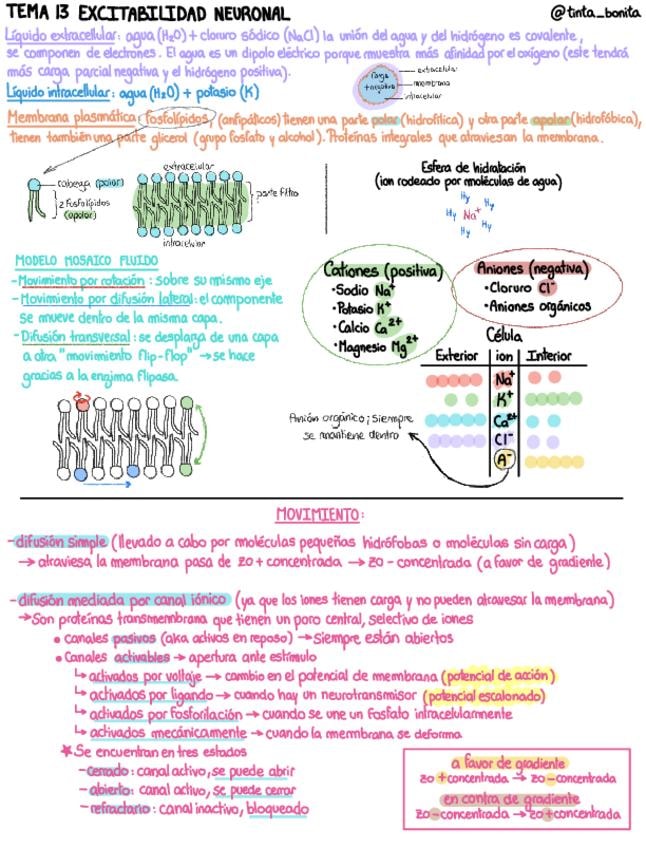 TEMA 13 EXCITABILIDAD NEURONAL
@tinta_bonita
Líquido extracelular: agua (H₂O) + cloruro sódico (NaCl) la unión del agua y del hidrógeno es covalente,
se componen de electrones. El agua es un dipolo eléctrico porque muestra más afinidad por el oxígeno (este tendrá
más carga parcial negativa y el hidrógeno positiva).
Líquido intracelular: agua (H₂O) + potasio (K)
carga
+negativa
extracelular
membrana
intracelular
Membrana plasmática: fosfolípidos, (anfipáticos) tienen una parte polar (hidrofílica) y otra parte apolar (hidrofóbica),
tienen también una parte glicerol (grupo fosfato y alcohol). Proteínas integrales que atraviesan la membrana.
cabeza (polar)
2 fosfolípidos
(apolar)
extracelular
intracelular
parte filtro
Esfera de hidratación
(ion rodeado por moléculas de agua)
Hy
Hy
Hy Na⁺ Hy
Hy
Hy
MODELO MOSAICO FLUIDO
-Movimiento por rotación: sobre su mismo eje
-Movimiento por difusión lateral: el componente
se mueve dentro de la misma capa.
-Difusión transversal: se desplaza de una capa
a otra "movimiento flip-flop" → se hace
gracias a la enzima flipasa.
Cationes (positiva)
·Sodio Na⁺
·Potasio K⁺
·Calcio Ca²⁺
·Magnesio Mg²⁺
Aniones (negativa)
·Cloruro Cl⁻
·Aniones orgánicos
Célula
Exterior ion Interior
Na⁺
K⁺
Ca²⁺
Cl⁻
A⁻
Anión orgánico; siempre
se mantiene dentro
MOVIMIENTO:
-difusión simple (llevado a cabo por moléculas pequeñas hidrófobas o moléculas sin carga)
→ atraviesa la membrana pasa de zo + concentrada → zo - concentrada (a favor de gradiente)
-difusión mediada por canal iónico (ya que los iones tienen carga y no pueden atravesar la membrana)
→ Son proteínas transmembrana que tienen un poro central, selectivo de iones
• canales pasivos (aka activos en reposo) → siempre están abiertos
• Canales activables → apertura ante estímulo
↳ activados por voltaje → cambio en el potencial de membrana (potencial de acción)
↳ activados por ligando → cuando hay un neurotransmisor (potencial escalonado)
↳ activados por fosforilación → cuando se une un fosfato intracelularmente
↳ activados mecánicamente → cuando la membrana se deforma
★ Se encuentran en tres estados
-cerrado: canal activo, se puede abrir
-abierto: canal activo, se puede cerrar
-refractario: canal inactivo, bloqueado
a favor de gradiente
zo +concentrada → zo -concentrada
en contra de gradiente
zo -concentrada → zo +concentrada